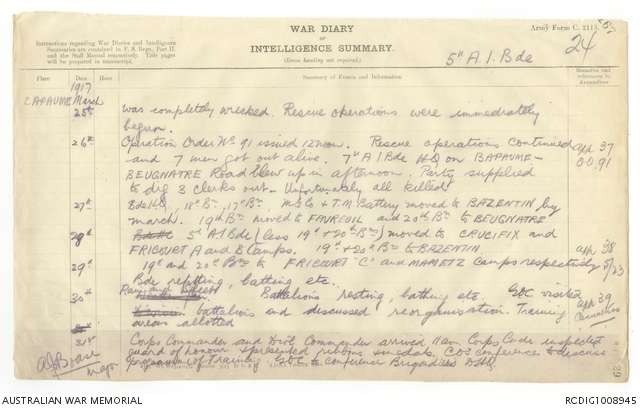 WAR DIARY
OR
INTELLIGENCE SUMMARY.
(Erase heading not required.)
Army Form C. 2118.
24
5th A I. Bde
Instructions regarding War Diaries and Intelligence
Summaries are contained in F. S. Regs., Part II.
and the Staff Manual respectively. Title pages
will be prepared in manuscript.
Place Date Hour Summary of Events and Information Remarks and references to Appendices
1917
BAPAUME March
25th was completely wrecked. Rescue operations were immediately
begun.
26th Operation Order No 91 issued 12 noon. Rescue operations continued App 37
and 7 men got out alive. 7th A I Bde HQ on BAPAUME- O.O. 91
BEUGNATRE Road blew up in afternoon. Party supplied
to dig 3 clerks out - Unfortunately all killed
27th Bde HQ, 18th Bn, 17th Bn MG Co + T.M. Battery moved to BAZENTIN by
march. 19th Bn moved to FAVREUIL and 20th Bn to BEUGNATRE
28th 5th A I Bde (less 19th + 20th Bns) moved to CRUCIFIX and
FRICOURT A and B Camps. 19th + 20th Bns to BAZENTIN App. 38
29th 19th and 20th Bns to FRICOURT "C" and MAMETZ Camps respectively
Bde refitting, bathing etc.
30th Battalions resting, bathing etc GOC visited App 39
battalions and discussed reorganisation. Training
areas allotted
31st Corps Commander and Divl Commander arrived 11 am Corps Comdr inspected
guard of honour & presented ribbons & medals. COs Conference to discuss
programme of Training. GOC to conference Brigadiers DHQ.
Major
29
AUSTRALIAN WAR MEMORIAL
RCDIG1008945